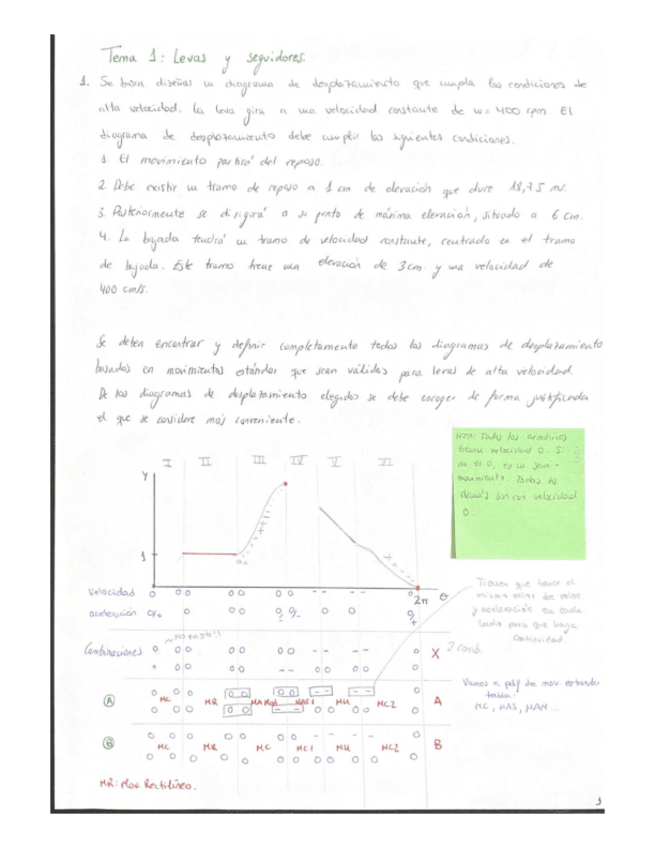 Tema 1: Levas y seguidores.
1. Se busca diseñar un diagrama de desplazamiento que cumpla las condiciones de
alta velocidad. La leva gira a una velocidad constante de w = 400 rpm. El
diagrama de desplazamiento debe cumplir las siguientes condiciones.
1. El movimiento partirá del reposo.
2. Debe existir un tramo de reposo a 1 cm de elevación que dure 18,75 ms.
3. Posteriormente se dirigirá a su punto de máxima elevación, situado a 6 cm.
4. La bajada tendrá un tramo de velocidad constante, centrado en el tramo
de bajada. Este tramo tiene una elevación de 3 cm. y una velocidad de
400 cm/s.
Se deben encontrar y definir completamente todos los diagramas de desplazamiento
basados en movimientos estándar que sean válidos para levas de alta velocidad
De los diagramas de desplazamiento elegidos se debe escoger de forma justificada
el que se considere más conveniente.
NOTA: Todos los armónicos
tienen velocidad 0. Si
no es 0, es un semi-
movimiento. Todos los
demás son con velocidad
0.
I II III IV V VI
Y
1
θ
2π
Velocidad 0 0 0 0 0 0 0 - - - - 0
aceleración 0/+ 0 0 0 0 0/- 0/- 0 0 0/+
Tienen que tener el
mismo valor de veloc
y aceleración en cada
lado para que haya
continuidad.
No existe!!
Combinaciones 0 0 0 0 0 0 0 - - - - 0 X 2 cond.
+ 0 0 0 0 - - 0 0 0 0
Vamos a pdf de mov. estándar
tabla:
MC, MAS, MAM...
A 0 0 0 0 0 0 0 - - - - 0 A
MC MR MAM MU MC2
0 0 0 0 0 - - 0 0 0 0 0
B 0 0 0 0 0 0 0 - - - - 0 B
MC MR MC MC1 MU MC2
0 0 0 0 0 0 0 0 0 0 0 0
MR: Mov Rectilíneo.
1